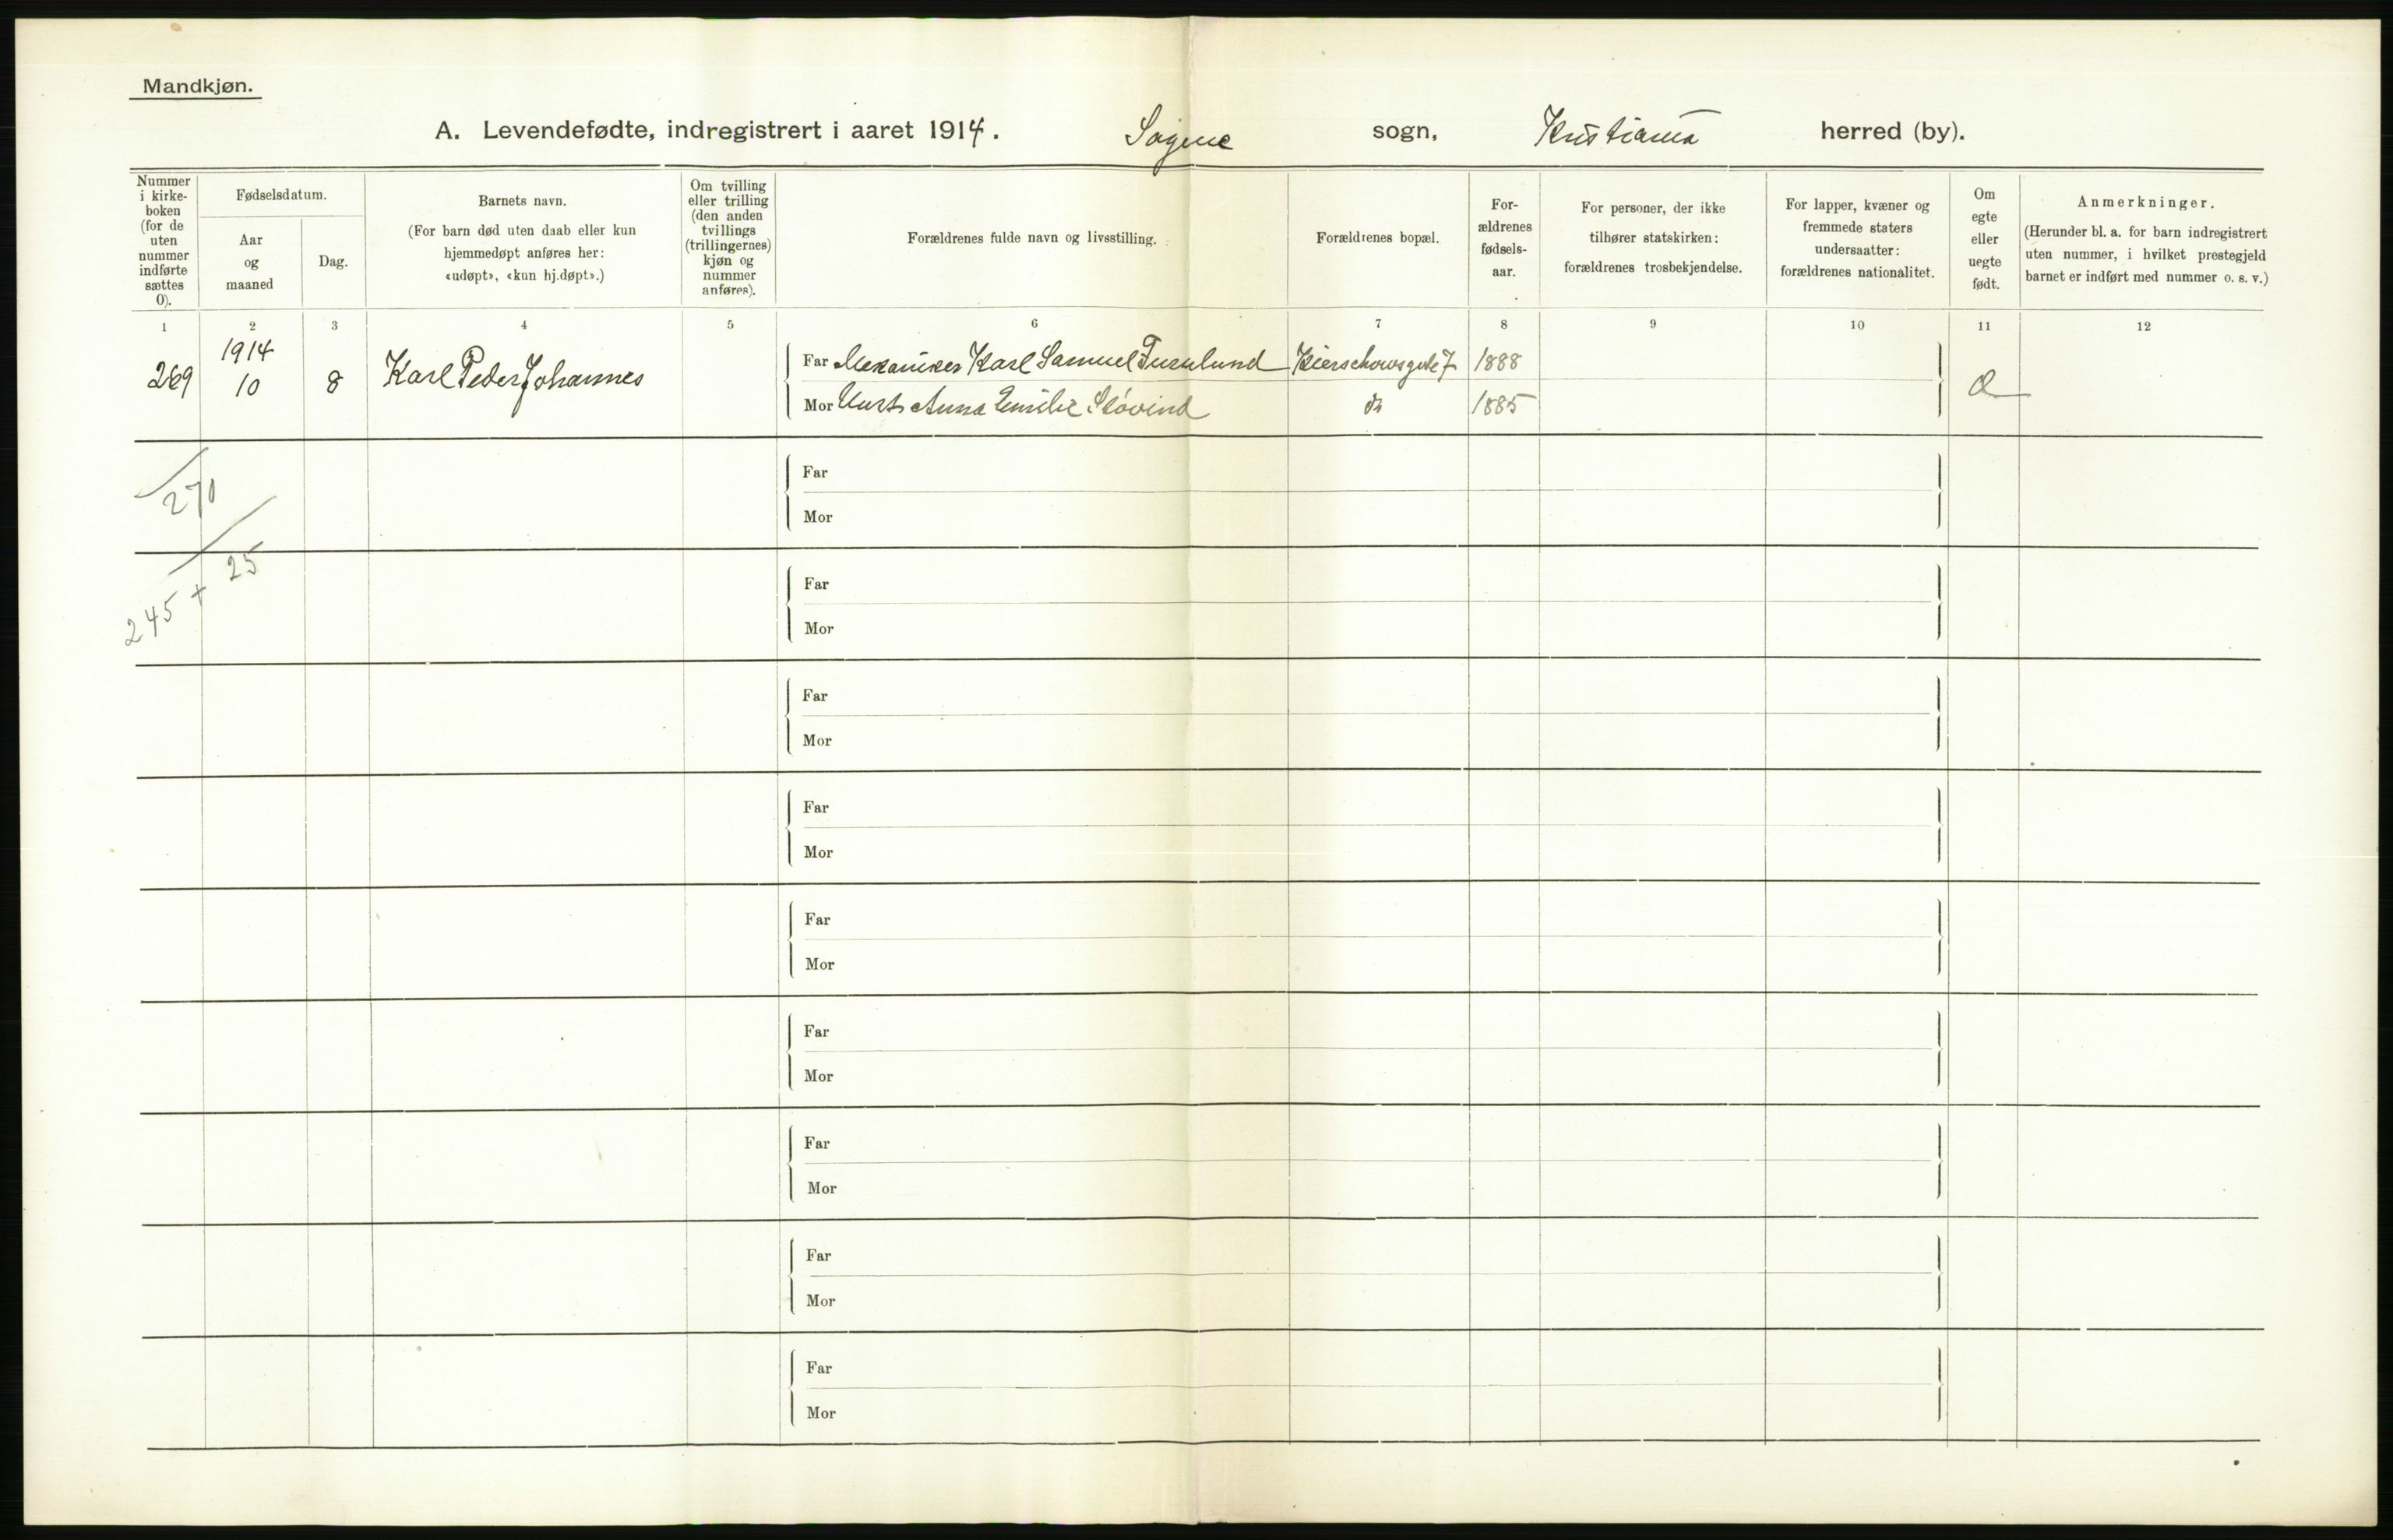 Mandkjøn.
A. Levendefødte, indregistrert i aaret 1914. Sagene sogn, Kristiania herred (by).
Nummer i kirke-boken (for de uten nummer indførte sættes 0).
Fødselsdatum.
Aar og maaned
Dag.
Barnets navn.
(For barn død uten daab eller kun
hjemmedøpt anføres her:
«udøpt», «kun hj.døpt».)
Om tvilling
eller trilling
(den anden
tvillings
(trillingernes)
kjøn og
nummer
anføres).
Forældrenes fulde navn og livsstilling.
Forældrenes bopæl.
For-
ældrenes
fødsels-
aar.
For personer, der ikke
tilhører statskirken:
forældrenes trosbekjendelse.
For lapper, kvæner og
fremmede staters
undersaatter:
forældrenes nationalitet.
Om
egte
eller
uegte
født.
Anmerkninger.
(Herunder bl. a. for barn indregistrert
uten nummer, i hvilket prestegjeld
barnet er indført med nummer o. s. v.)
1 2 3 4 5 6 7 8 9 10 11 12
1914
269 10 8 Karl Peder Johannes
Far Mekaniker Karl Samuel 7 1888
Mor Anna Emilie Støvind do 1885
270
245 + 25
Far
Mor
Far
Mor
Far
Mor
Far
Mor
Far
Mor
Far
Mor
Far
Mor
Far
Mor
Far
Mor